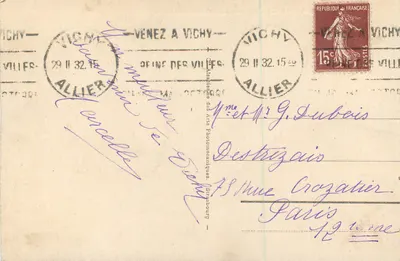 VICHY
29 II 32. 15
ALLIER
VENEZ A VICHY
REINE DES VILLES
VICHY
29 II 32. 15
ALLIER
VICHY
DES VILLES
RÉPUBLIQUE FRANÇAISE
15c
Mon meilleur
souvenir de Vichy
Marcelle
Mme et Mr G. Dubois
Destrezais
78 Rue Crozatier
Paris
12 ème